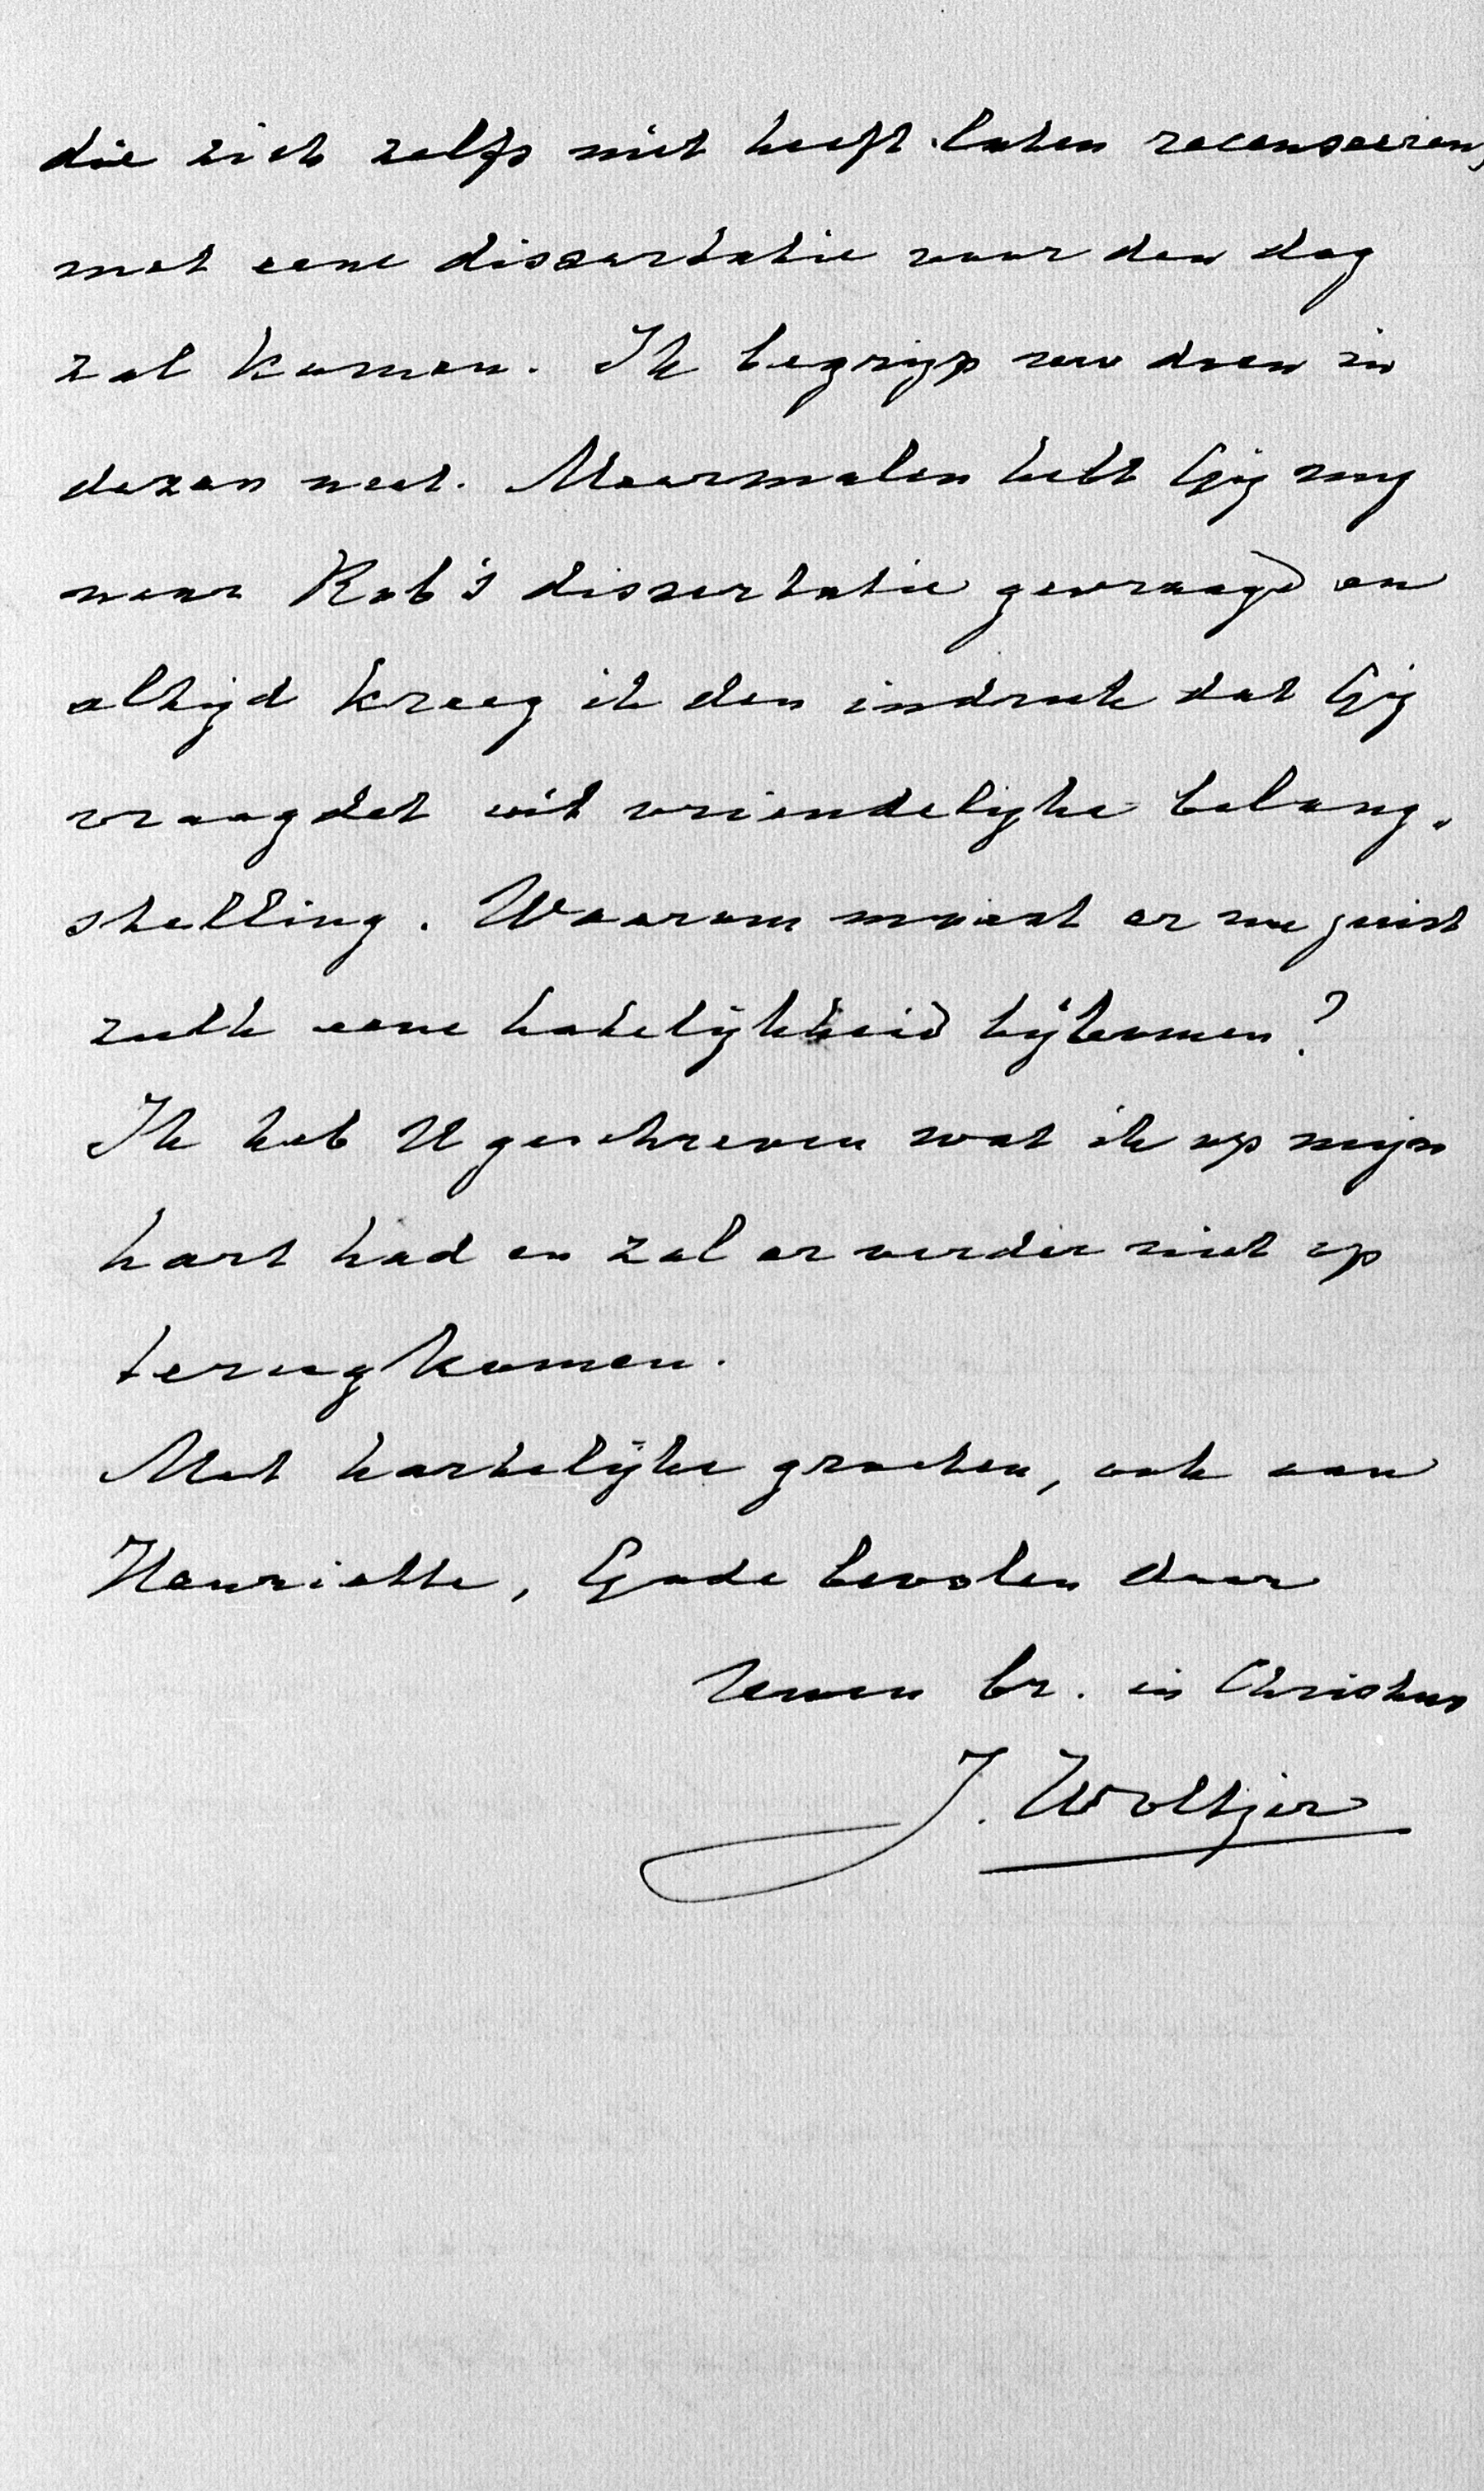 die zich zelfs niet heeft laten recenseeren,
met eene dissertatie voor den dag
zal komen. Ik begrijp uw doen in
dezen niet. Meermalen hebt Gij mij
naar Rob's dissertatie gevraagd en
altijd kreeg ik den indruk dat Gij
vraagdet uit vriendelijke belang-
stelling. Waarom moest er nu juist
zulk eene hatelijkheid bijkomen?
Ik heb U geschreven wat ik op mijn
hart had en zal er verder niet op
terugkomen.
Met hartelijke groeten, ook aan
Henriette, Gode bevolen door
Uwen br. in Christus
J. Woltjer